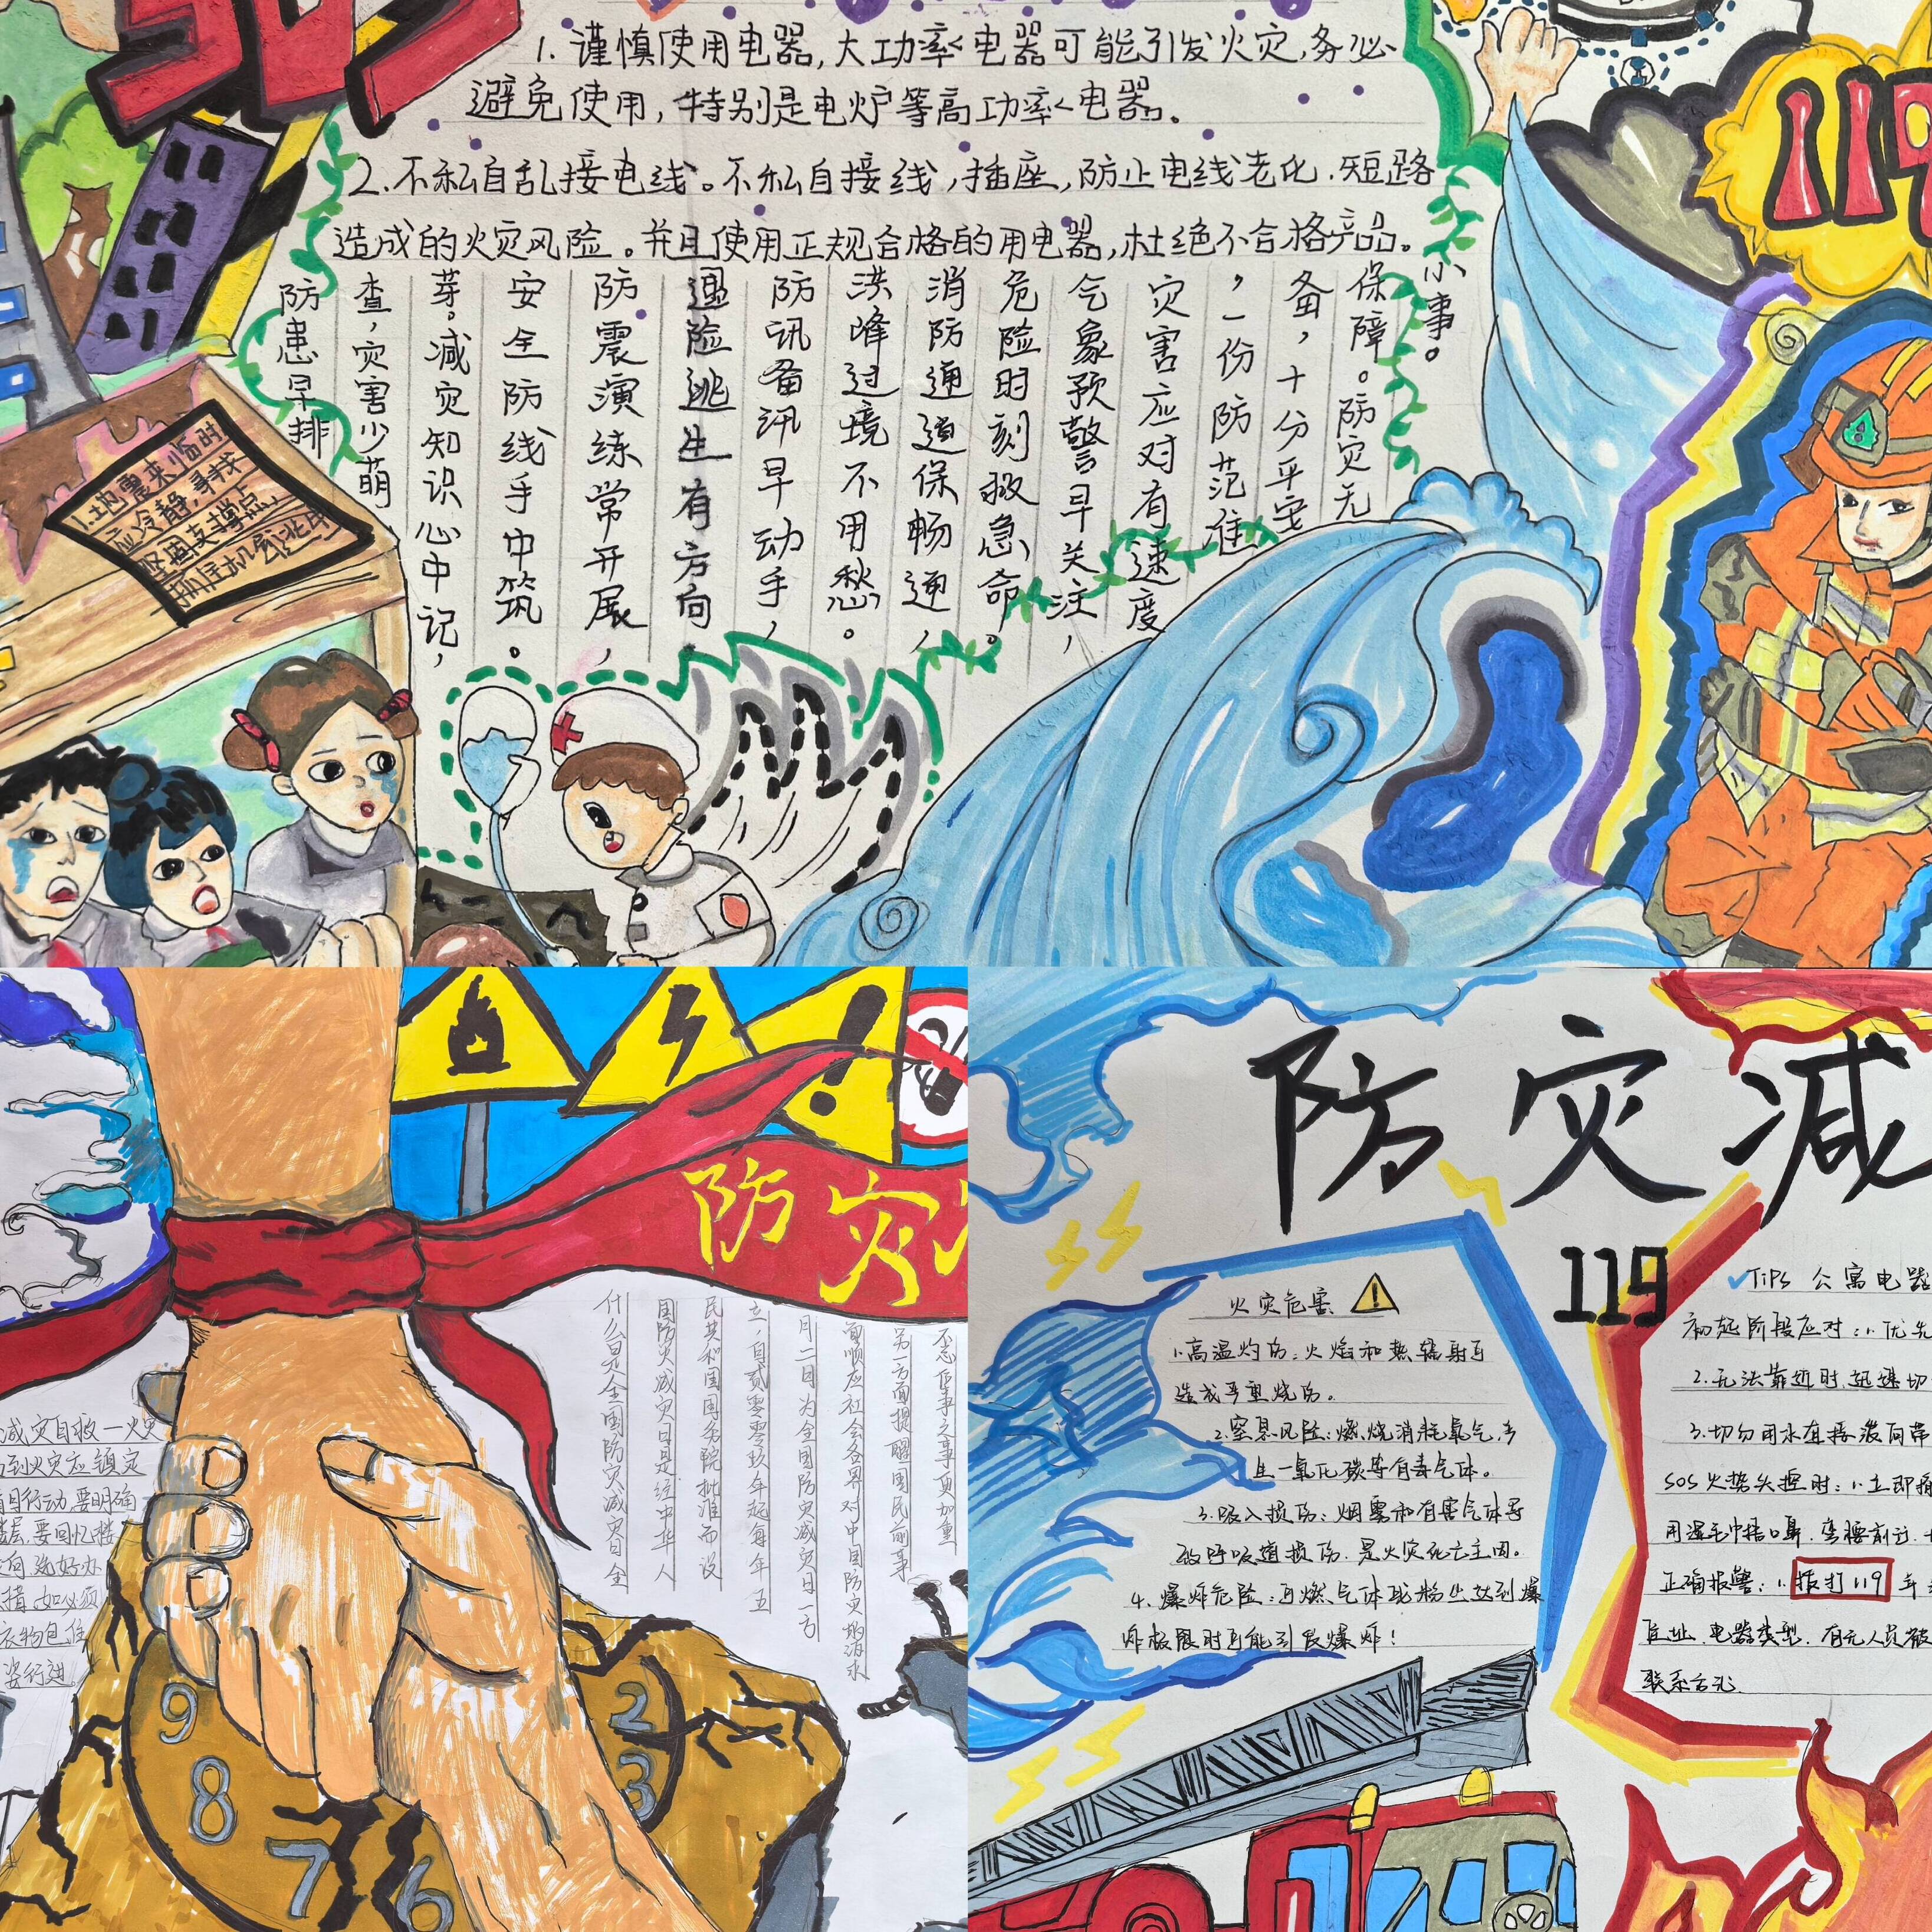 1. 谨慎使用电器,大功率电器可能引发火灾,务必
避免使用,特别是电炉等高功率电器。
2. 不私自乱接电线。不私自接线,插座,防止电线老化.短路
造成的火灾风险。并且使用正规合格的用电器,杜绝不合格产品。
小事。
保障。防灾无
备,十分平安
,一份防范准
灾害应对有速度
气象预警早关注,
危险时刻救急命。
消防通道保畅通,
洪峰过境不用愁。
防汛备汛早动手,
遇险逃生有方向。
防震演练常开展,
安全防线手中筑。
芽。减灾知识心中记,
查,灾害少萌
防患早排
119
1.地震来临时
应冷静,寻找
坚固支撑点,
防灾
不忘后事之事更加重
另一方面提醒国民前事
面顺应社会各界对中国防灾
月二日为全国防灾减灾日一方
立,自贰零零玖年起每年五
民共和国国务院批准而设
国防灾减灾日是经中华人
什么是全国防灾减灾日全
减灾自救一火灾
到火灾应镇定
目行动,要明确
楼层,要回忆楼
向,选好办
措,如必须
衣物包住
姿行进。
9
8
7
6
2
3
防灾减
119
火灾危害
1.高温灼伤:火焰和热辐射可
造成严重烧伤。
2.窒息风险:燃烧消耗氧气,产
生一氧化碳等有毒气体。
3.吸入损伤:烟雾和有害气体导
致呼吸道损伤.是火灾死亡主因。
4.爆炸危险:可燃气体或粉尘达到爆
炸极限时可能引发爆炸!
TiPS 公寓电器
初起阶段应对:1.优先
2.无法靠近时,迅速切
3.切勿用水直接泼向带
SOS火势失控时:1.立即
用湿毛巾捂口鼻.弯腰前行.
正确报警:1.拨打119
住址.电器类型.有无人员被
联系方式.